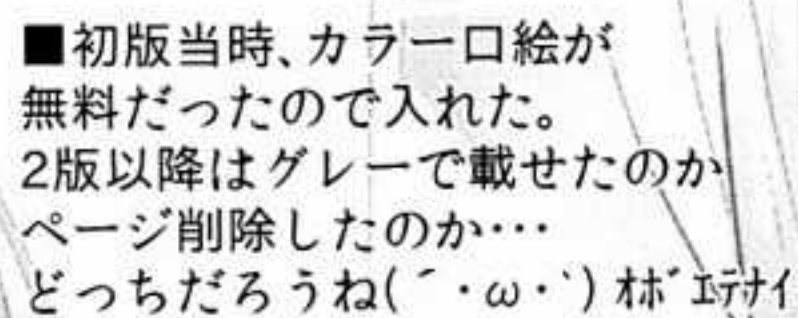 ■初版当時、カラー口絵が
無料だったので入れた。
2版以降はグレーで載せたのか
ページ削除したのか…
どっちだろうね(´・ω・`)ｵﾎﾞｴﾃﾅｲ